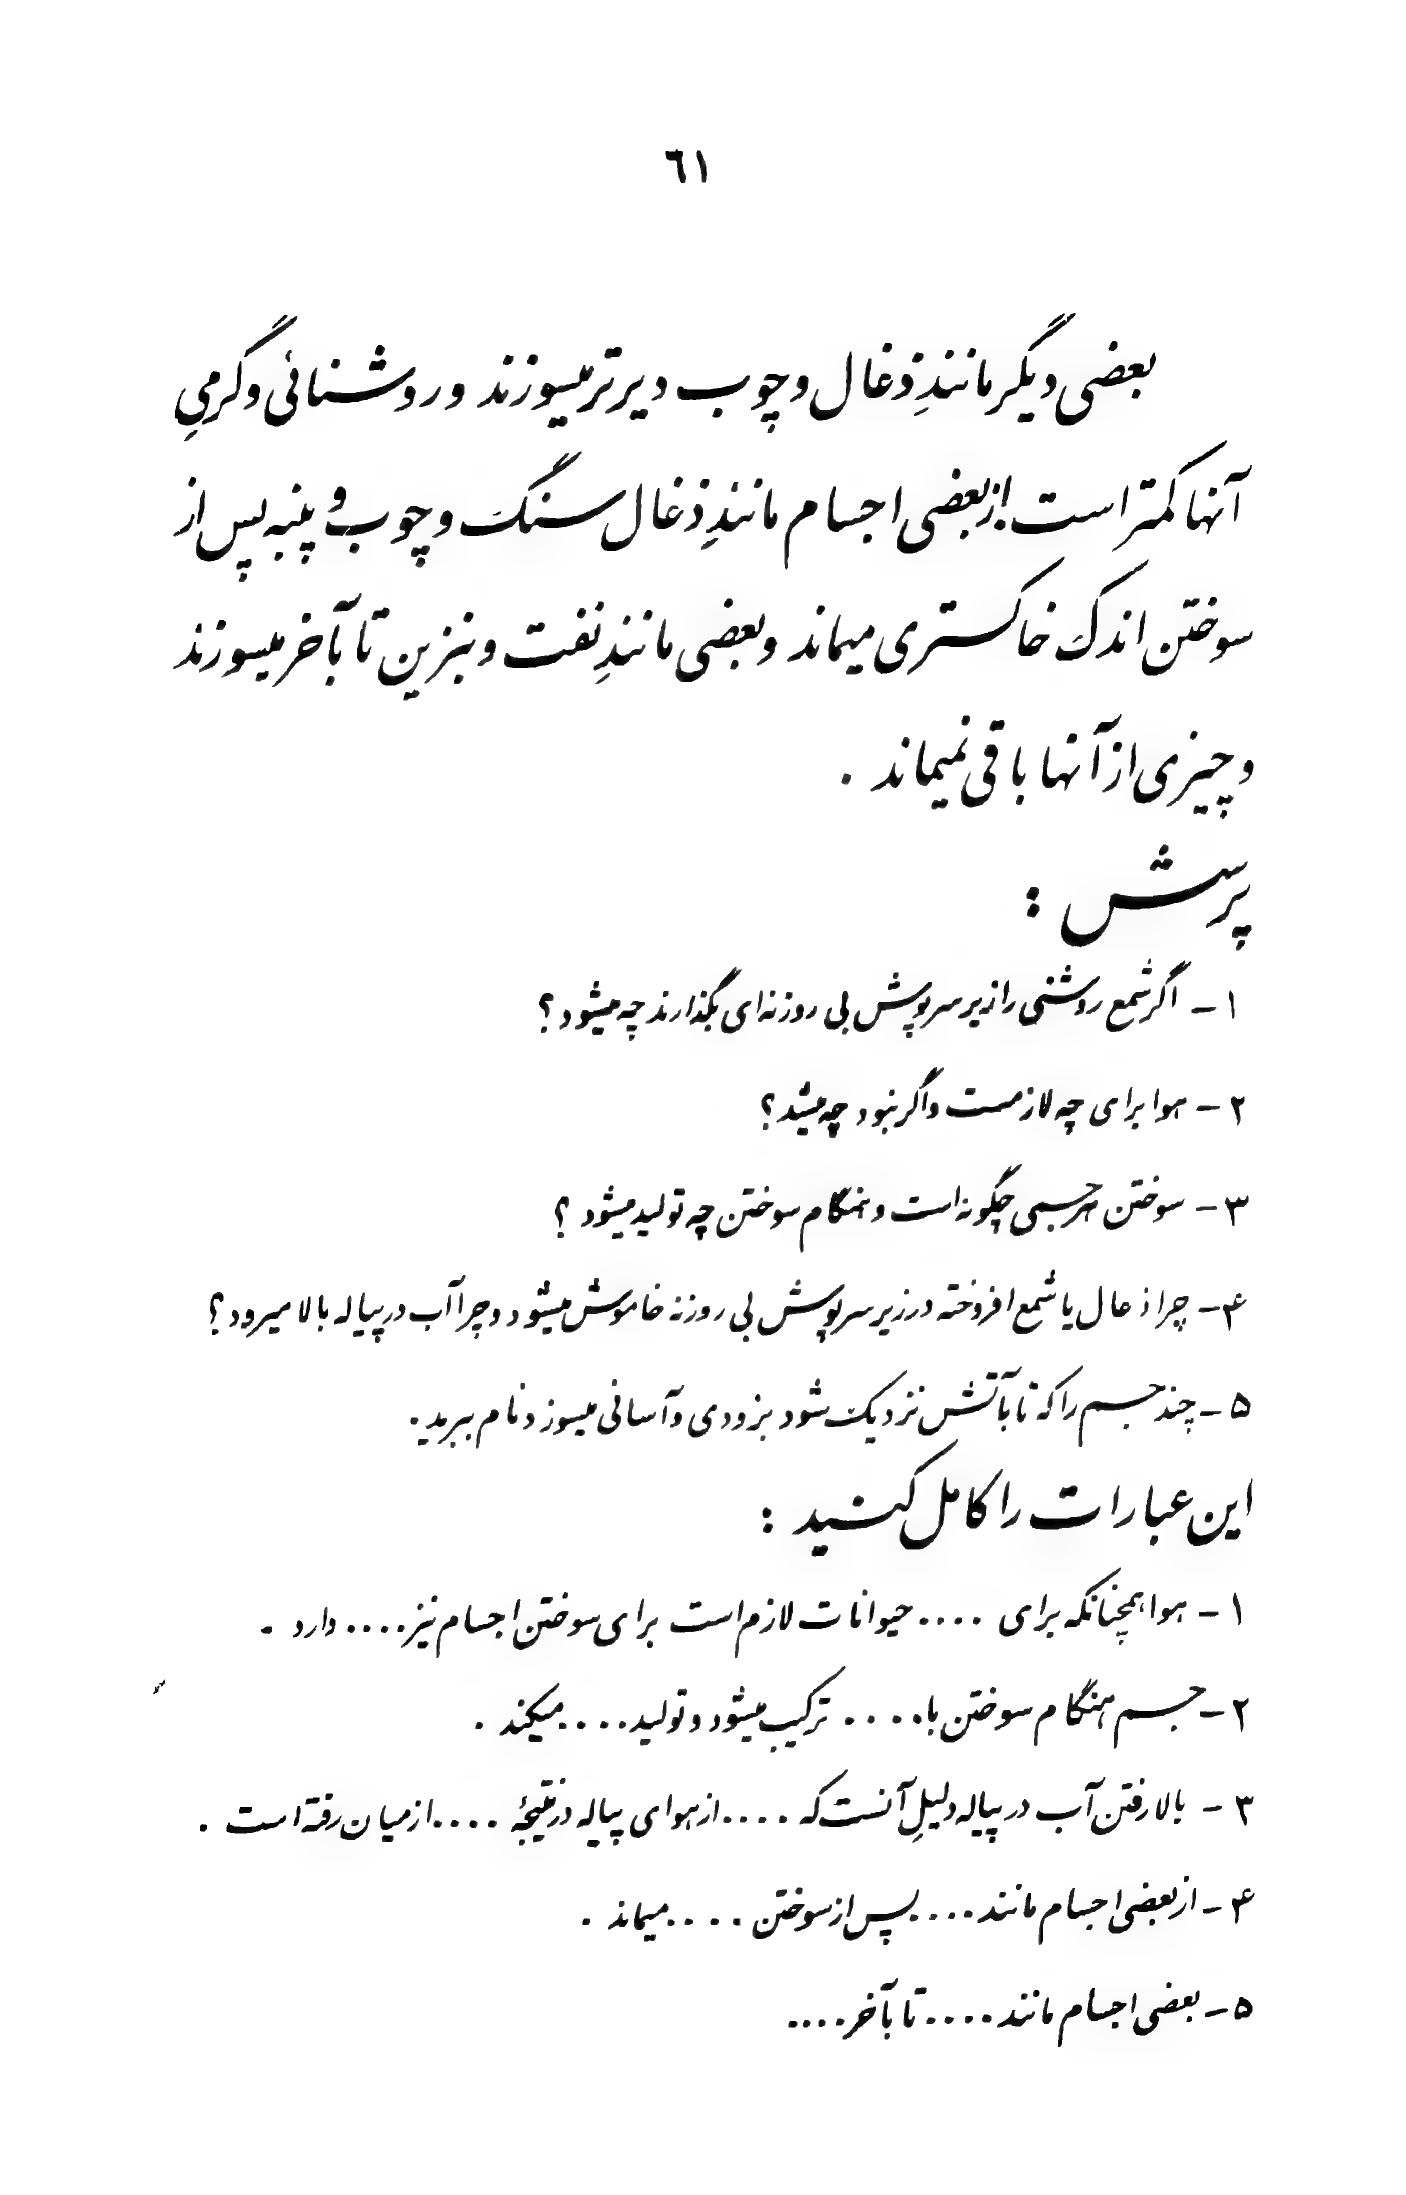 ٦١
بعضی دیگر مانندِ ذغال و چوب دیرتر میسوزند و روشنائی و گرمیِ
آنها کمتر است. از بعضی اجسام مانندِ ذغال سنگ و چوب و پنبه پس از
سوختن اندک خاکستری میماند و بعضی مانندِ نفت و بنزین تا بآخر میسوزند
و چیزی از آنها باقی نمیماند .
پرسش :
۱ - اگر شمع روشنی را زیر سرپوش بی روزنه‌ای بگذارند چه میشود ؟
۲ - هوا برای چه لازمست و اگر نبود چه میشد ؟
۳ - سوختن هر جسمی چگونه است و هنگام سوختن چه تولید میشود ؟
۴ - چرا ذغال یا شمع افروخته در زیر سرپوش بی روزنه خاموش میشود و چرا آب در پیاله بالا میرود ؟
۵ - چند جسم را که تا بآتش نزدیک شود بزودی و آسانی میسوزد نام ببرید .
این عبارات را کامل کنید :
۱ - هوا همچنانکه برای .... حیوانات لازم است برای سوختن اجسام نیز .... دارد .
۲ - جسم هنگام سوختن با .... ترکیب میشود و تولید .... میکند .
۳ - بالا رفتن آب در پیاله دلیلِ آنست که .... از هوای پیاله در نتیجهٔ .... از میان رفته است .
۴ - از بعضی اجسام مانند .... پس از سوختن .... میماند .
۵ - بعضی اجسام مانند .... تا بآخر ....